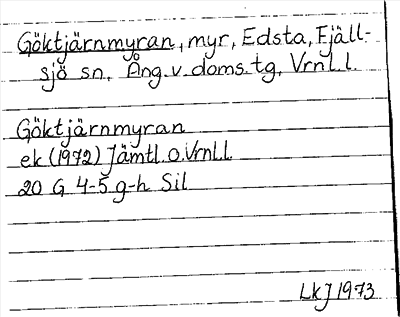 Göktjärnmyran, myr, Edsta, Fjäll-
sjö sn, Ång. v. doms. tg, Vrnl. l.
Göktjärnmyran
ek (1972) Jämtl. o. Vrnl. l
20 G 4-5 g-h Sil
LkJ 1973